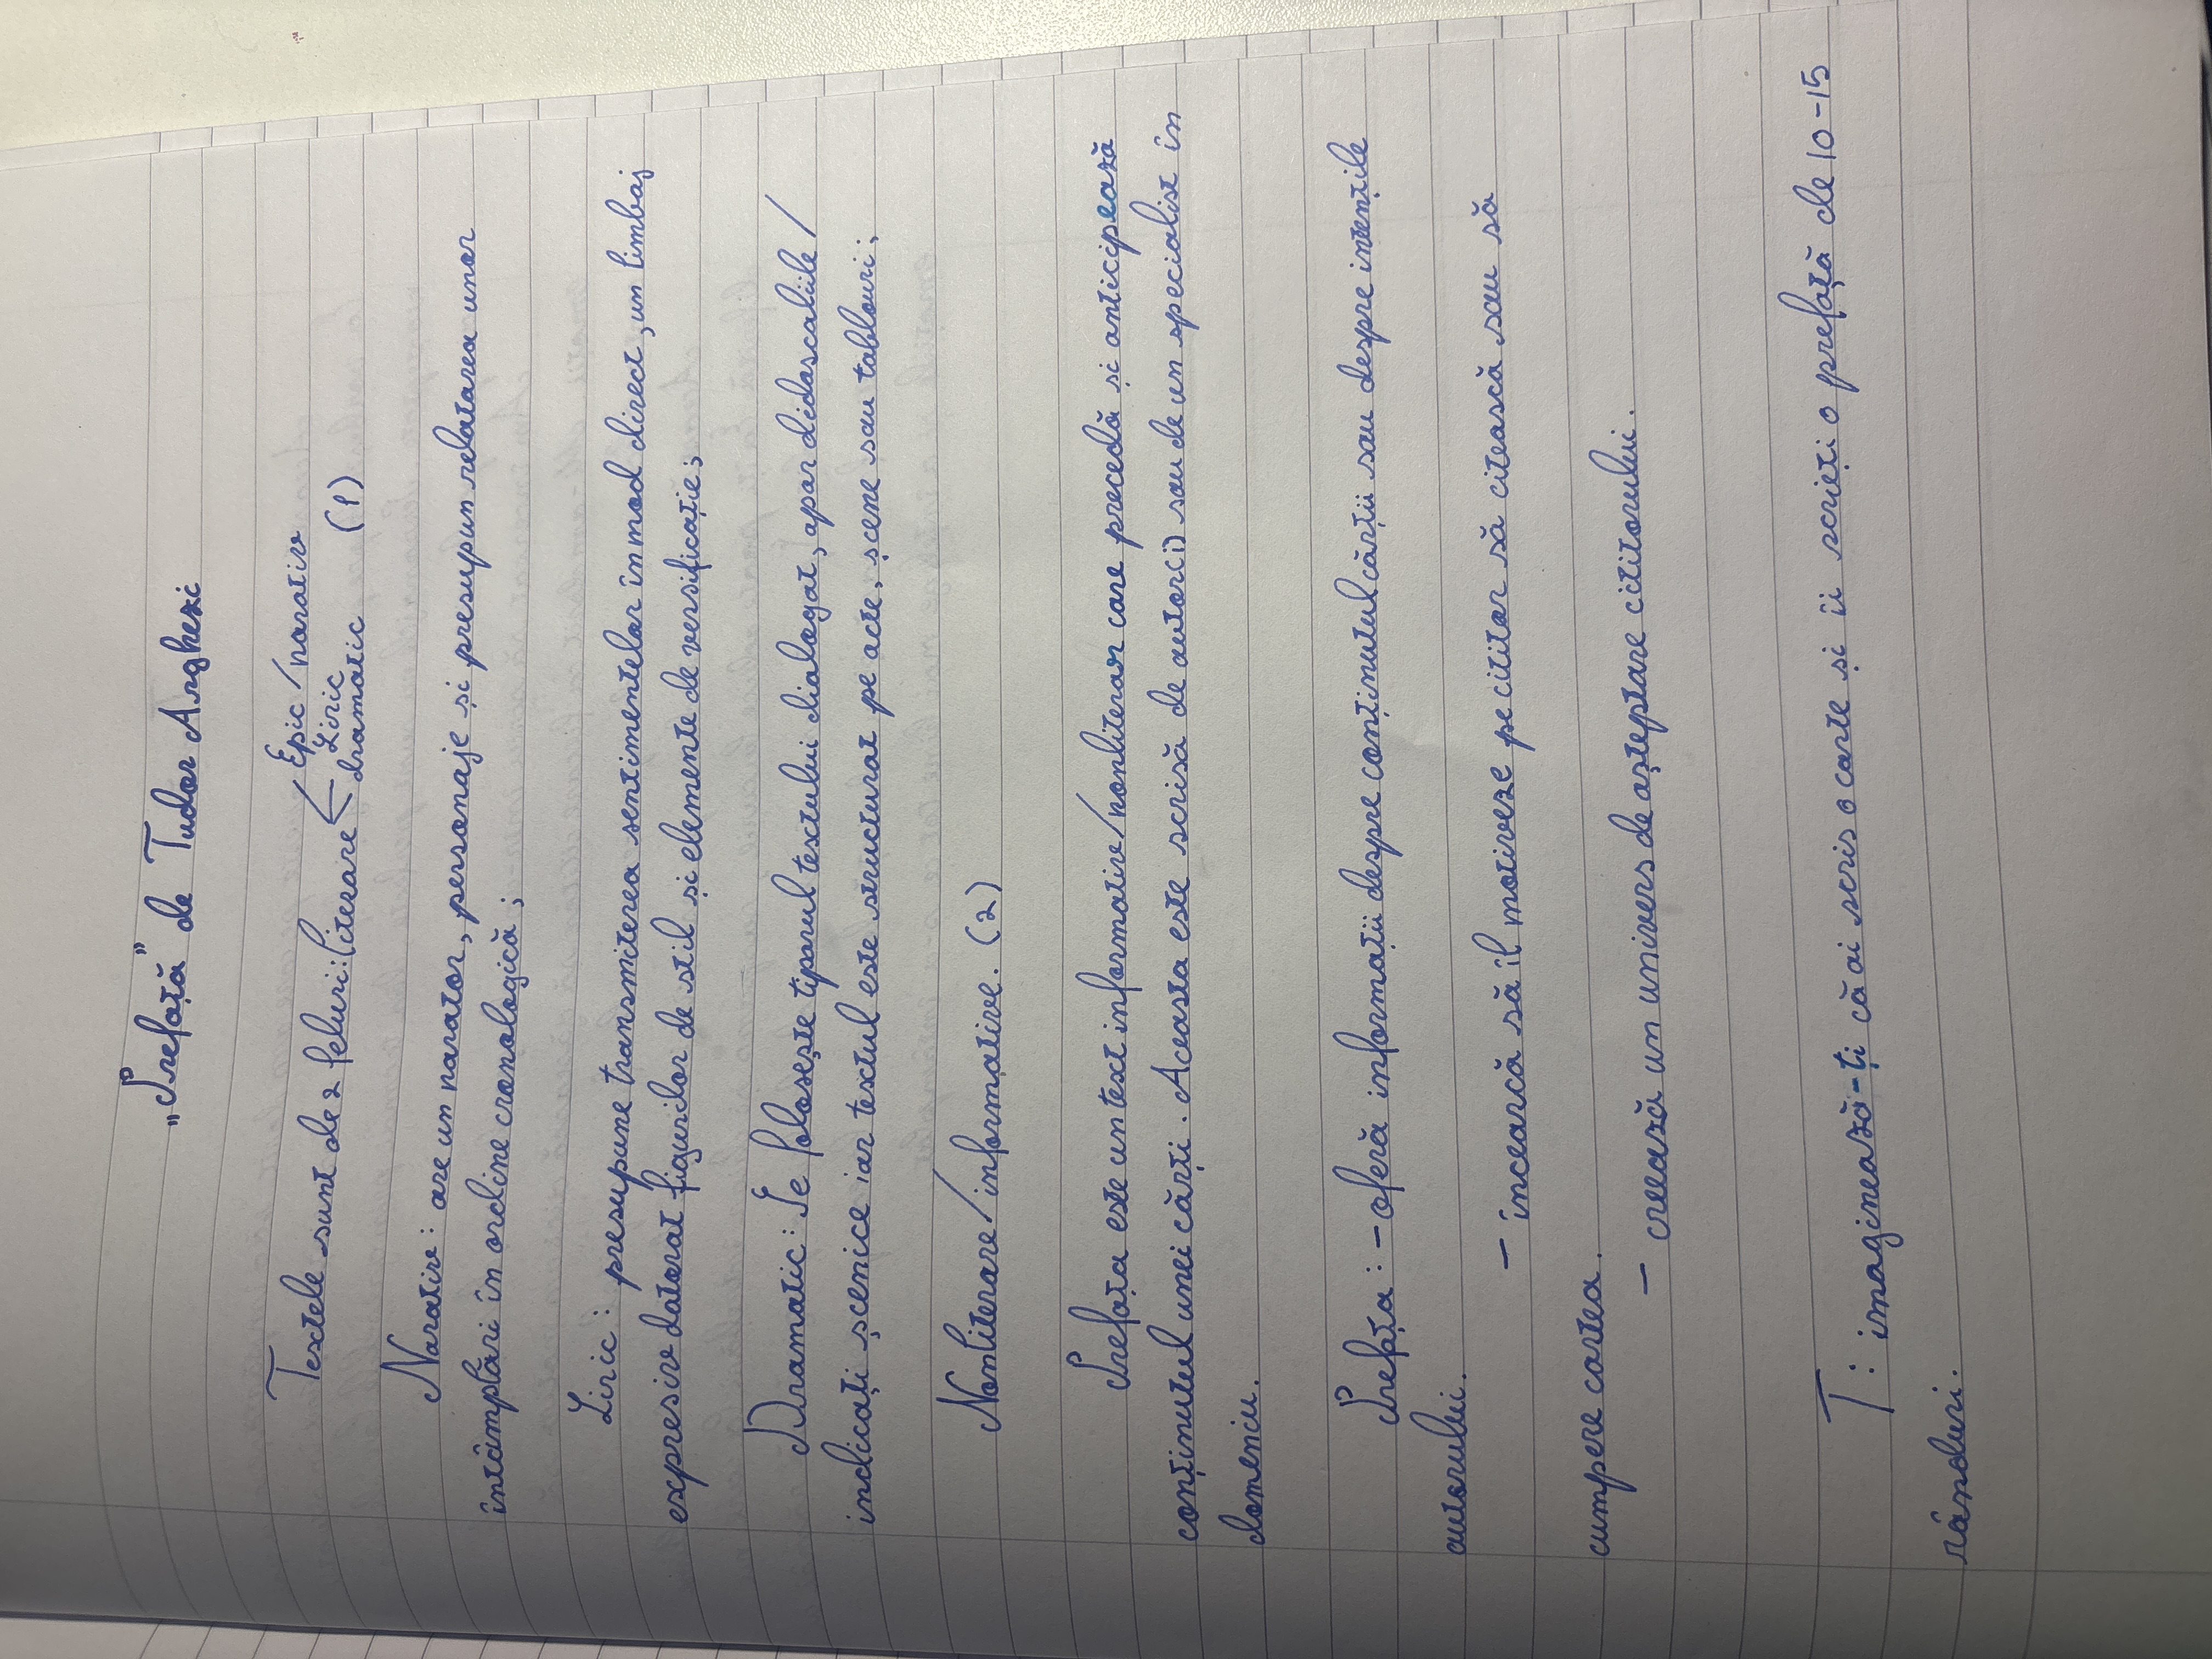 „Prefață” de Tudor Arghezi
Textele sunt de 2 feluri: literare
Epic/narativ
Liric
dramatic (1)
Narativ: are un narator, personaje și presupun relatarea unor
întâmplări în ordine cronologică;
Liric: presupune transmiterea sentimentelor în mod direct, un limbaj
expresiv datorat figurilor de stil și elemente de versificație;
Dramatic: Se folosește tiparul textului dialogat, apar didascaliile/
indicați scenice iar textul este structurat pe acte, scene sau tablouri;
Nonliterare/informative. (2)
Prefața este un text informativ/nonliterar care precedă și anticipează
conținutul unei cărți. Aceasta este scrisă de autor(i) sau de un specialist în
domeniu.
Prefața: - oferă informații despre conținutul cărții sau despre intențile
autorului.
- încearcă să îl motiveze pe cititor să citească sau să
cumpere cartea.
- creează un univers de așteptare cititorului.
T: imaginează-ți că ai scris o carte și îi scrieți o prefață de 10-15
rânduri.